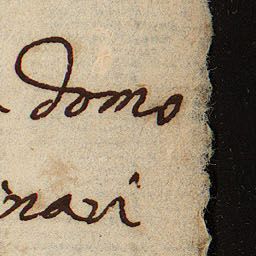 domo
nari